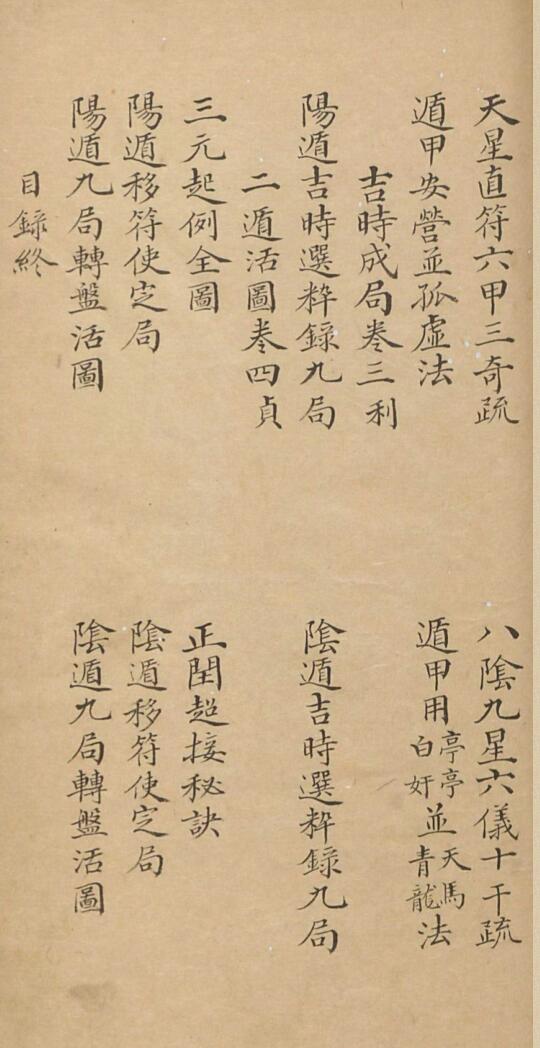 天星直符六甲三奇疏 八陰九星六儀十干疏
遁甲安營並孤虛法 遁甲用亭亭白奸並天馬青龍法
吉時成局卷三利
陽遁吉時選粹錄九局 陰遁吉時選粹錄九局
二遁活圖卷四貞
三元起例全圖 正閏超接秘訣
陽遁移符使定局 陰遁移符使定局
陽遁九局轉盤活圖 陰遁九局轉盤活圖
目錄終